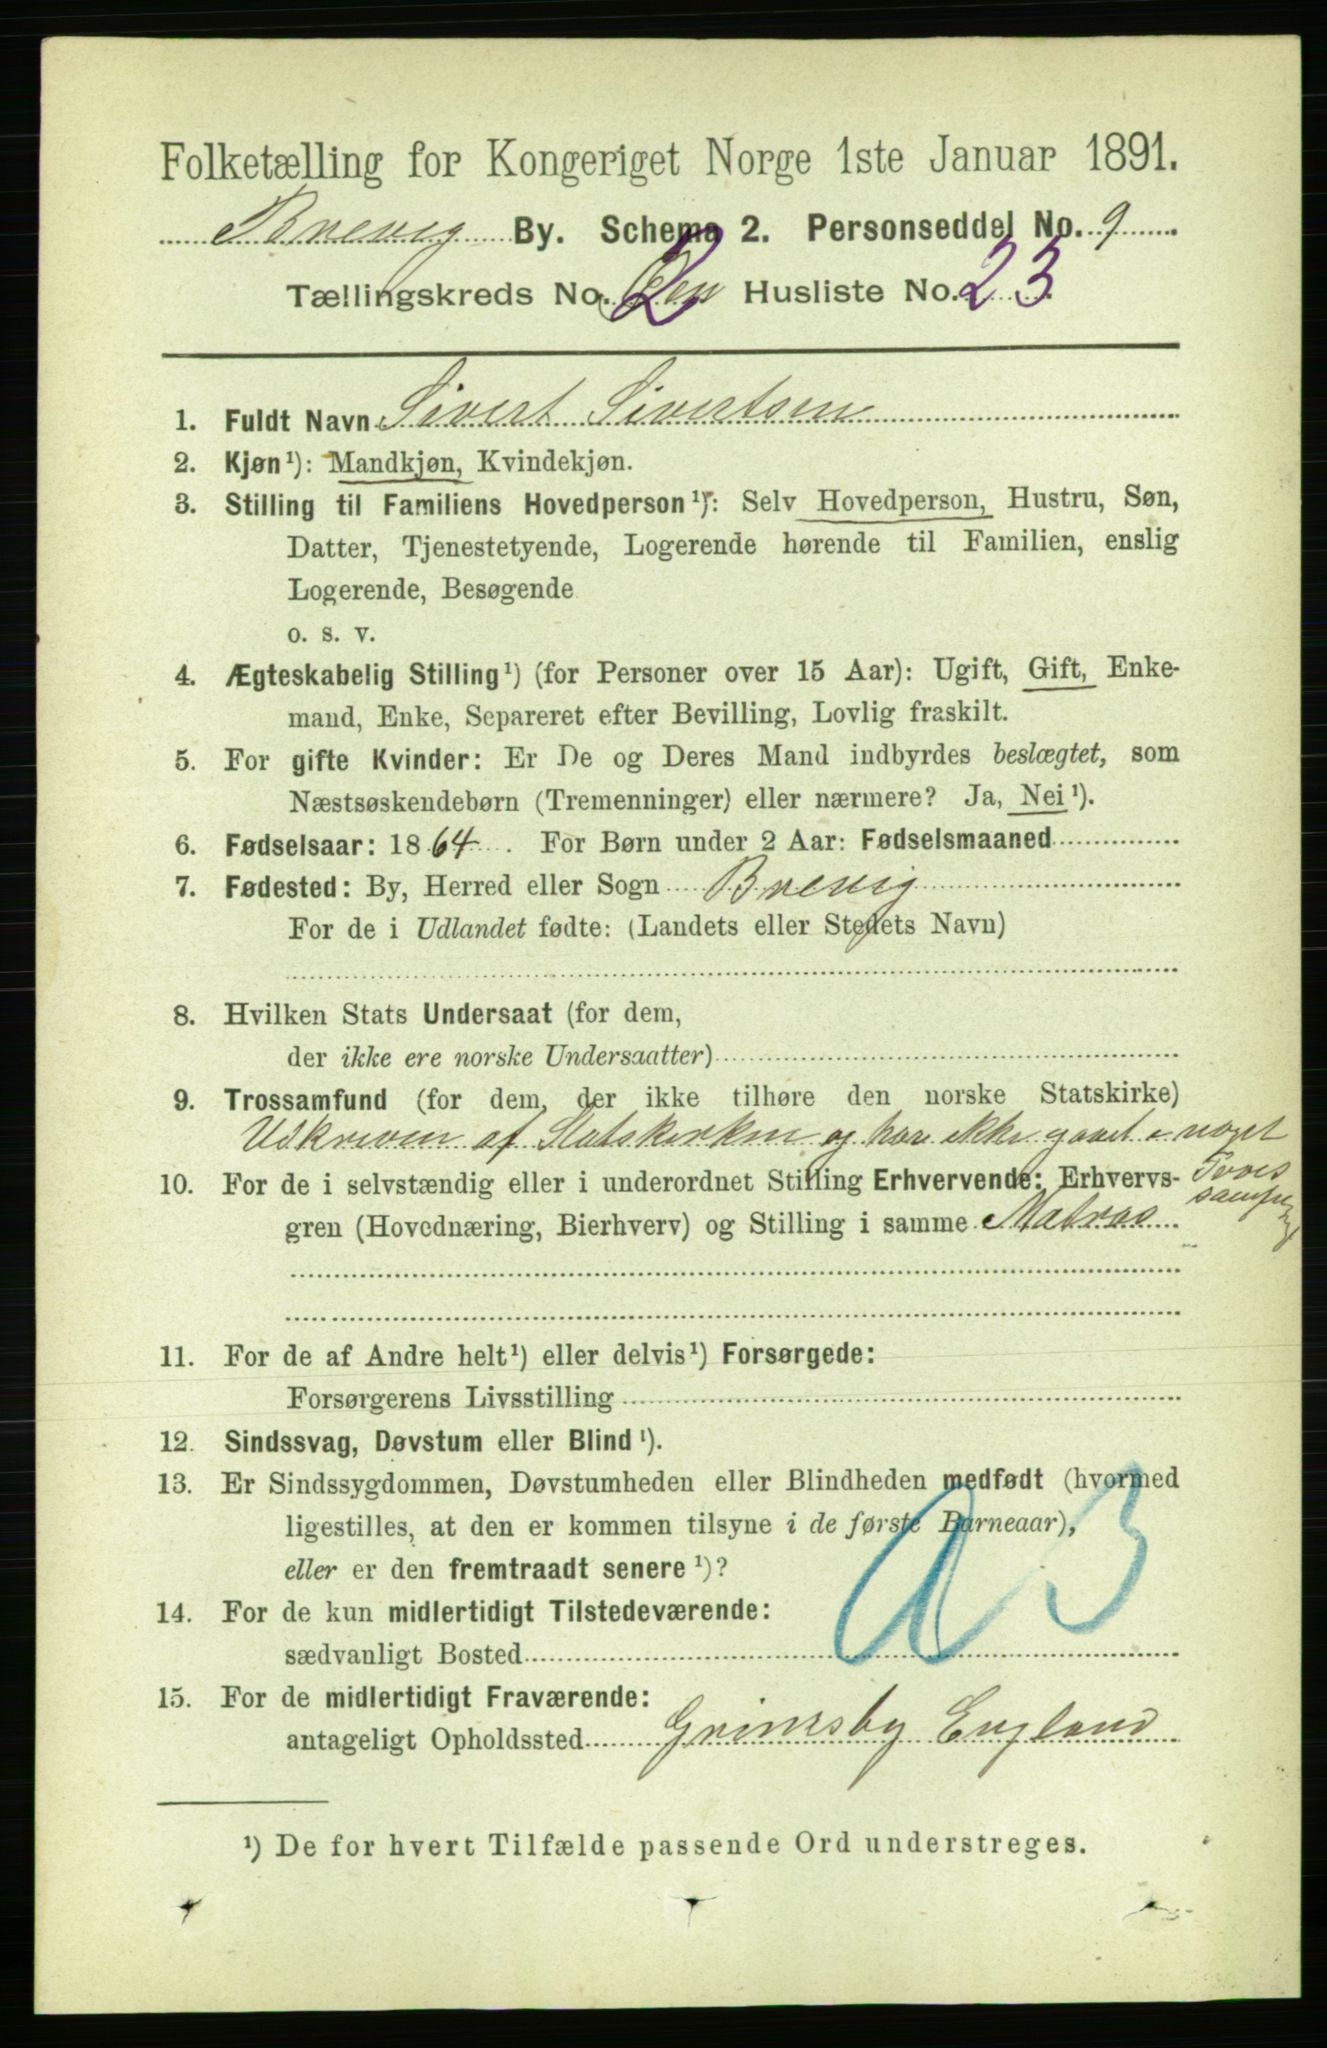 Folketælling for Kongeriget Norge 1ste Januar 1891.
Brevig By. Schema 2. Personseddel No. 9
Tællingskreds No. 2 Husliste No. 23.
1. Fuldt Navn Sivert Sivertsen
2. Kjøn ¹): Mandkjøn, Kvindekjøn.
3. Stilling til Familiens Hovedperson ¹): Selv Hovedperson, Hustru, Søn,
Datter, Tjenestetyende, Logerende hørende til Familien, enslig
Logerende, Besøgende
o. s. v.
4. Ægteskabelig Stilling ¹) (for Personer over 15 Aar): Ugift, Gift, Enke-
mand, Enke, Separeret efter Bevilling, Lovlig fraskilt.
5. For gifte Kvinder: Er De og Deres Mand indbyrdes beslægtet, som
Næstsøskendebørn (Tremenninger) eller nærmere? Ja, Nei ¹).
6. Fødselsaar: 1864. For Børn under 2 Aar: Fødselsmaaned
7. Fødested: By, Herred eller Sogn Brevig
For de i Udlandet fødte: (Landets eller Stedets Navn)
8. Hvilken Stats Undersaat (for dem,
der ikke ere norske Undersaatter)
9. Trossamfund (for dem, der ikke tilhøre den norske Statskirke)
Udkreven af Statskirken og har ikke gaaet i noget
Troes
samfund
10. For de i selvstændig eller i underordnet Stilling Erhvervende: Erhvervs-
gren (Hovednæring, Bierhverv) og Stilling i samme Matros
11. For de af Andre helt ¹) eller delvis ¹) Forsørgede:
Forsørgerens Livsstilling
12. Sindssvag, Døvstum eller Blind ¹).
13. Er Sindssygdommen, Døvstumheden eller Blindheden medfødt (hvormed
ligestilles, at den er kommen tilsyne i de første Barneaar),
eller er den fremtraadt senere ¹)?
14. For de kun midlertidigt Tilstedeværende:
sædvanligt Bosted
15. For de midlertidigt Fraværende:
antageligt Opholdssted Grimsby England
¹) De for hvert Tilfælde passende Ord understreges.